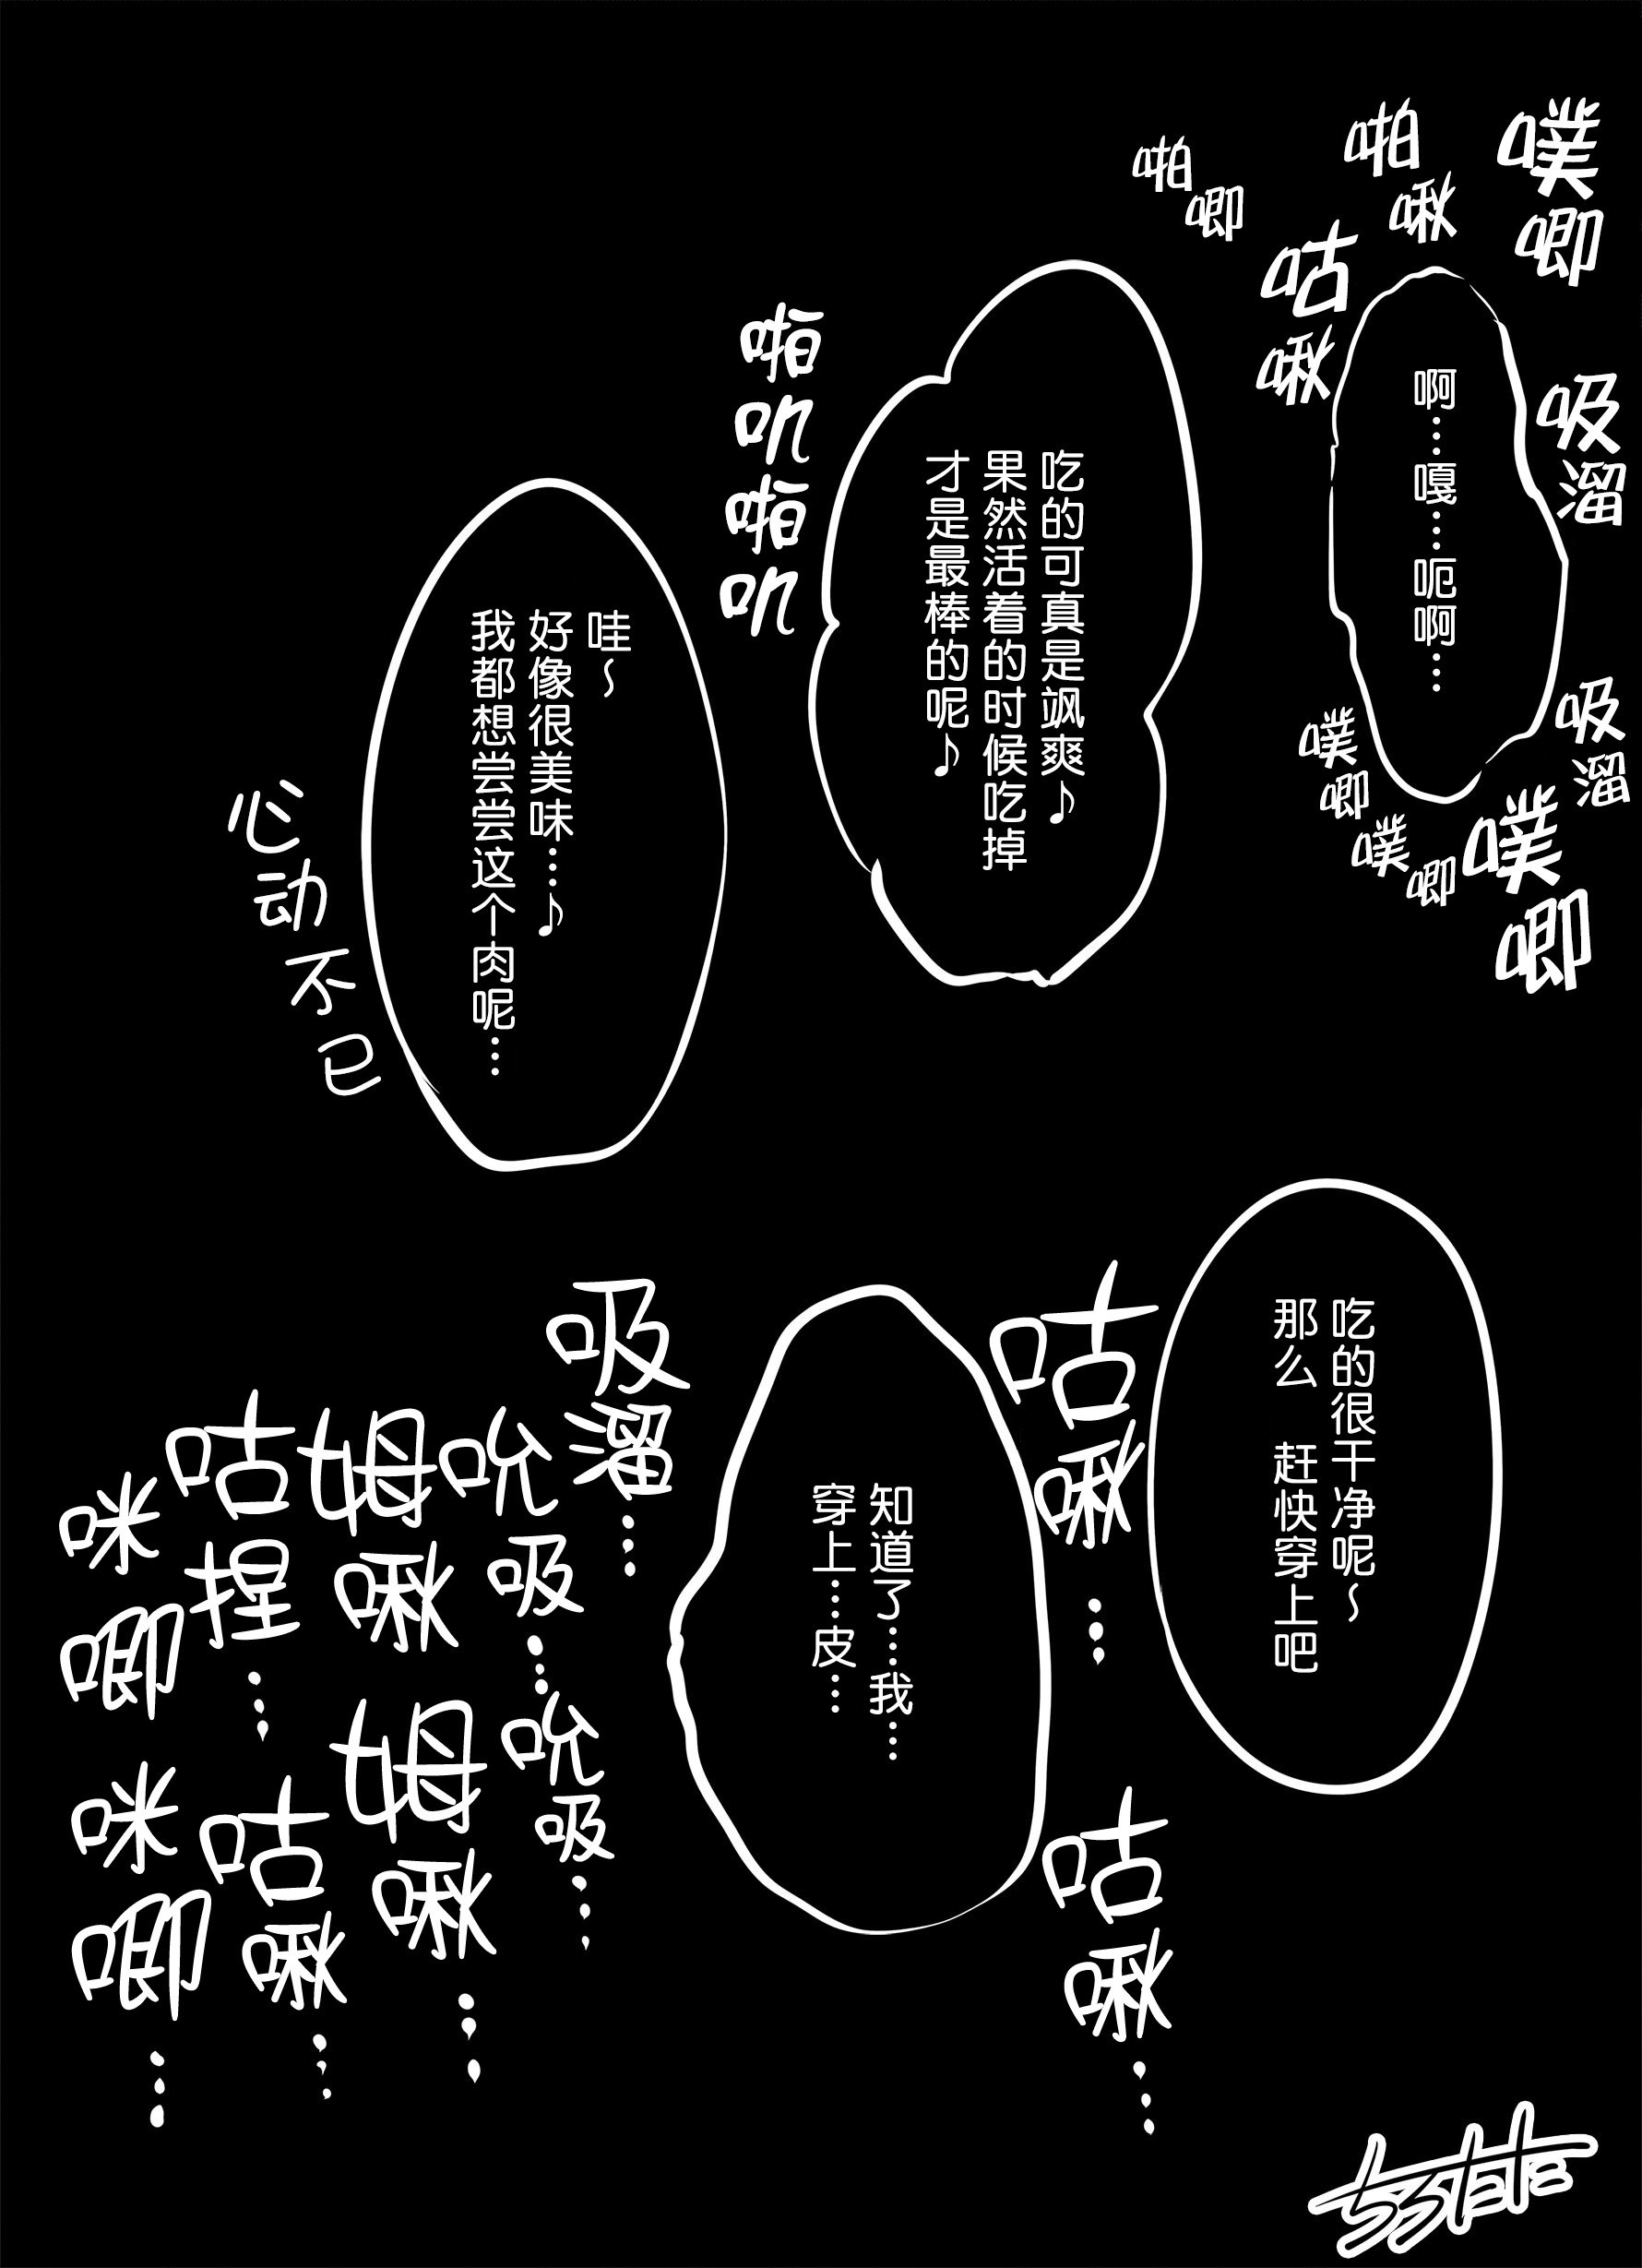 噗唧
啪啾
啪唧
咕啾
吸溜
啊……嘎……呃啊……
吸溜
噗唧
噗唧
噗唧
吃的可真是飒爽♪
果然活着的时候吃掉
才是最棒的呢♪
啪叽啪叽
哇～
好像很美味……♪
我都想尝尝这个肉呢…
心动不已
吃的很干净呢～
那么 赶快穿上吧
咕啾…
咕啾…
知道了……我…
穿上……皮…
吸溜…
吮吸…
吮吸…
姆啾
姆啾…
咕捏…
咕啾…
咪唧
咪唧…